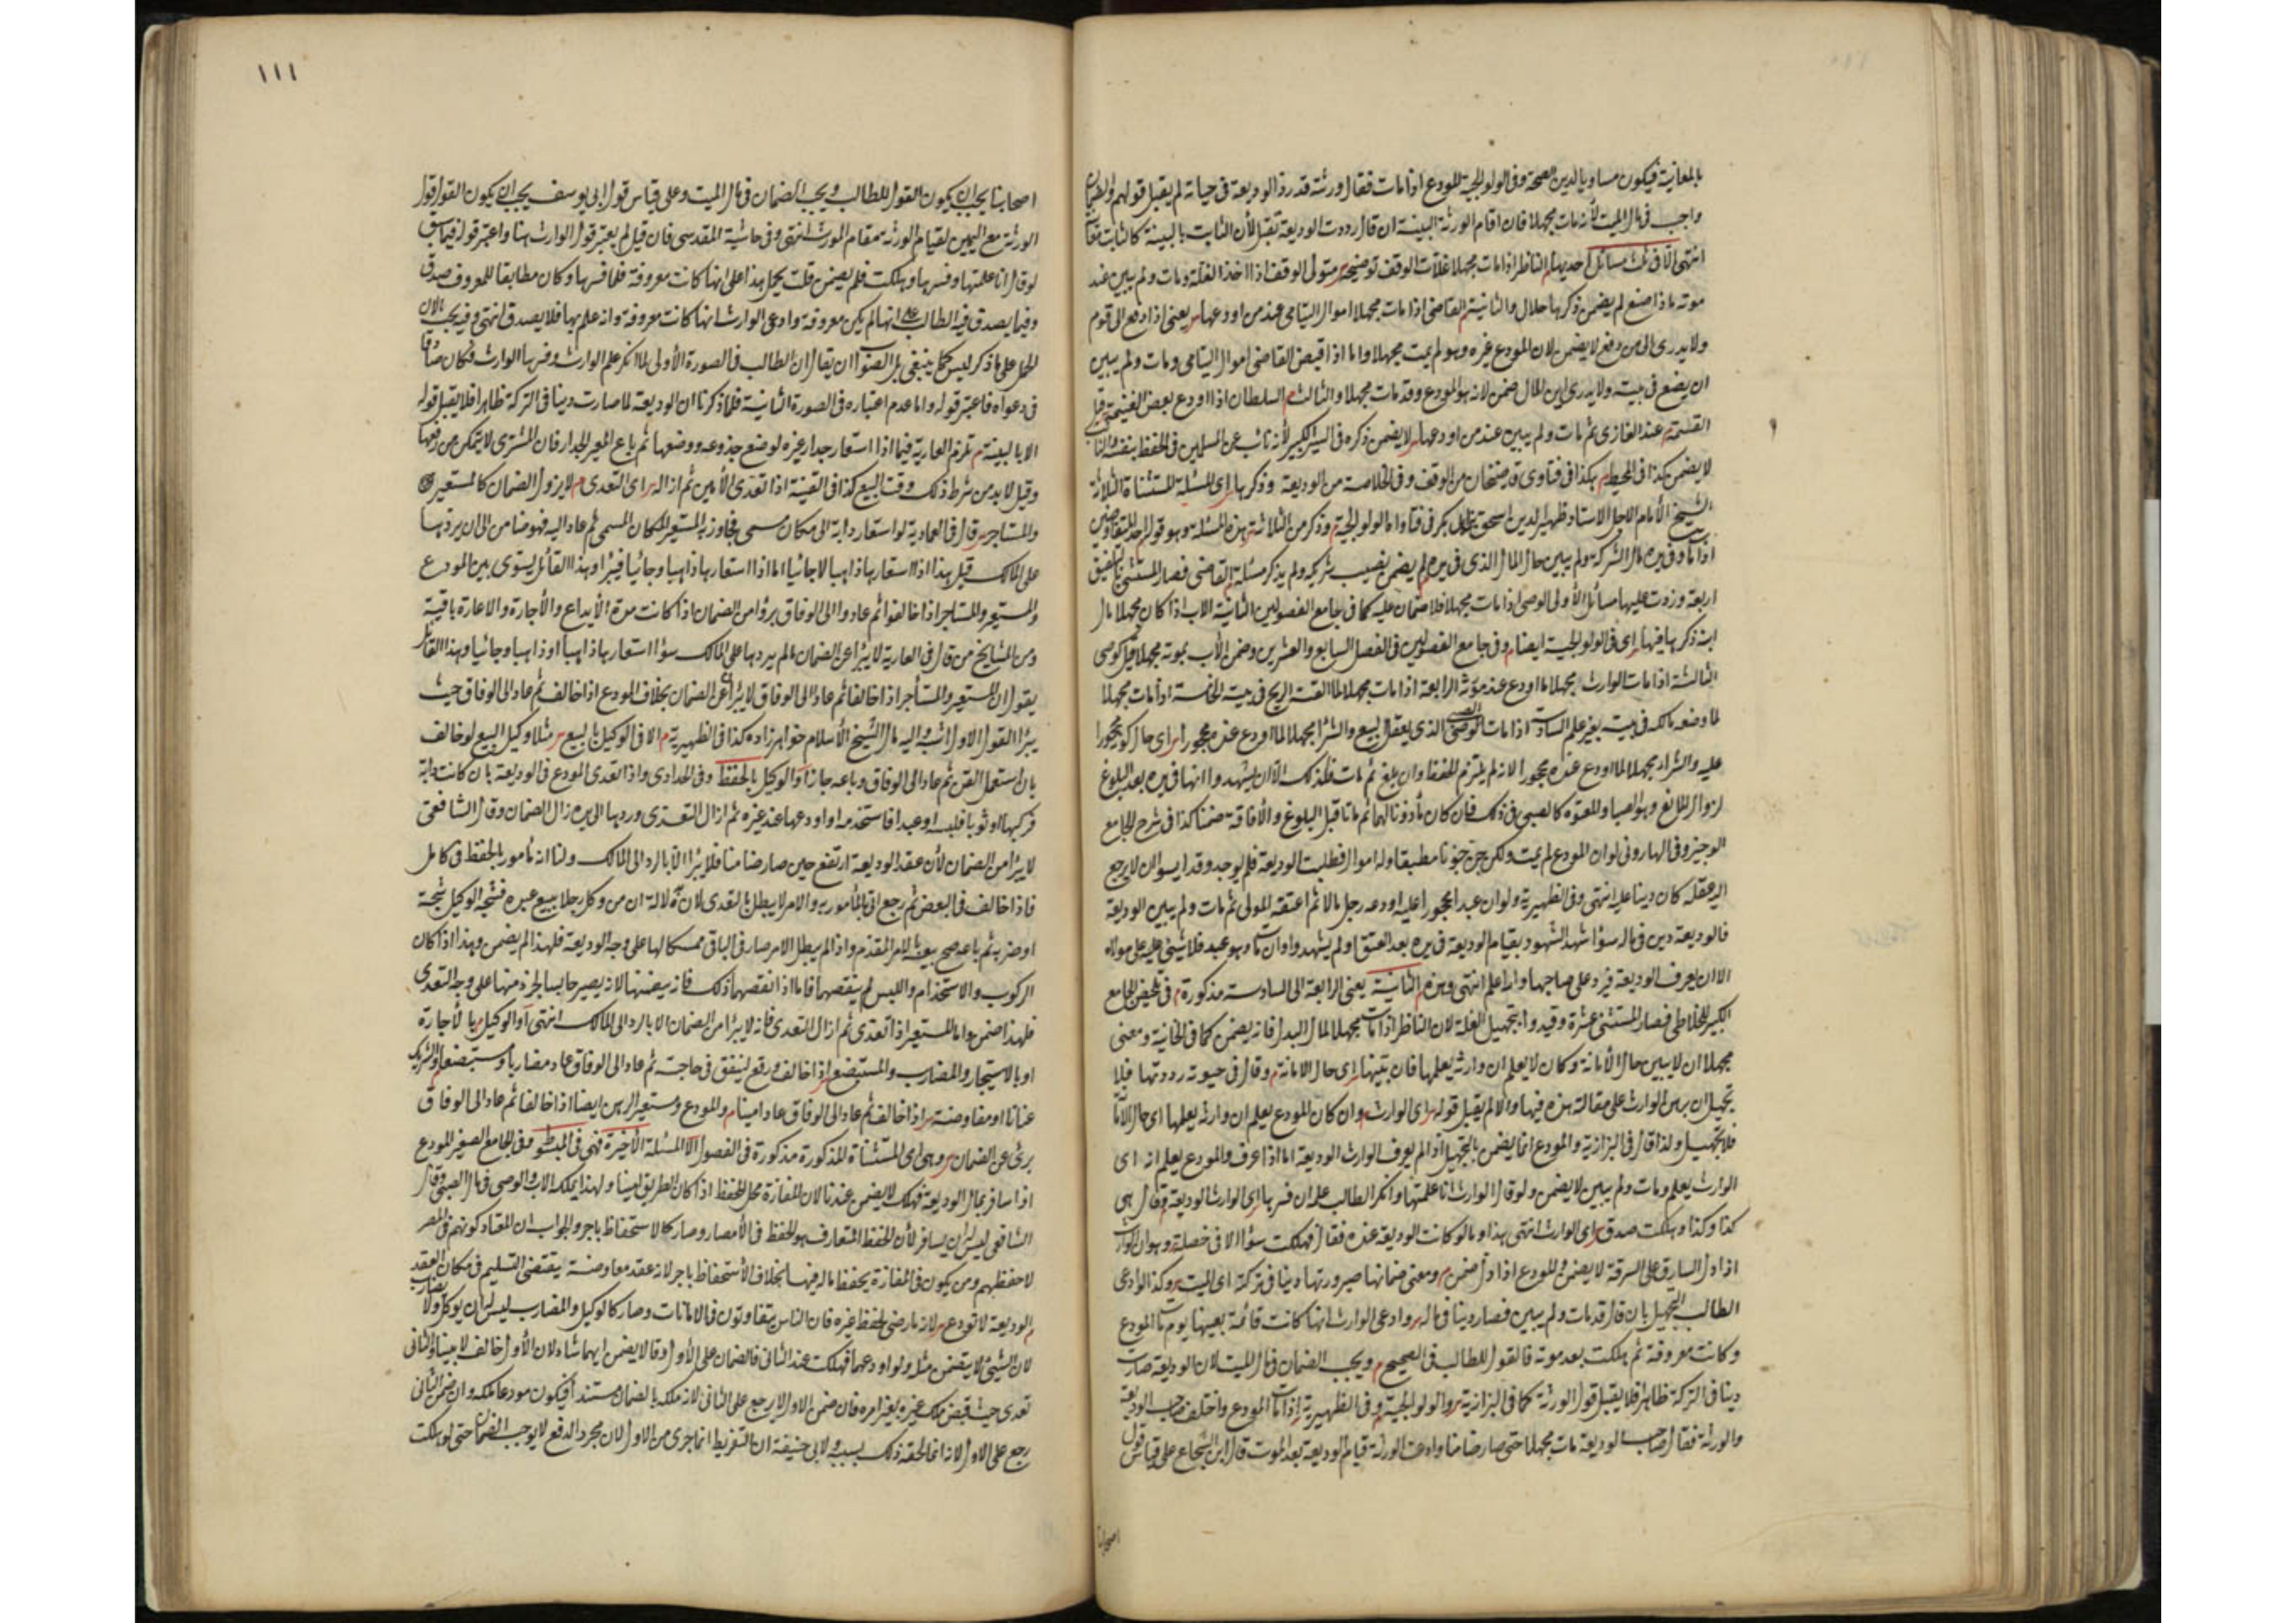 بالمعاينة فيكون مساويا لدين الصحة وفى الولوالجية المودع اذا مات فقال ورثته قد رد الوديعة فى حياته لم يقبل قولهم والضمان
واجب فى مال الميت لأنه مات مجهلا فان اقام الورثة البينة ان قال رددت الوديعة تقبل لأن الثابت بالبينة كالثابت
انتهى الا فى ثلث مسائل احديها الناظر اذا مات مجهلا غلات الوقف توضيحه متولى الوقف اذا اخذ الغلة ومات ولم يبين عند
موته ماذا صنع لم يضمن ذكرها هلال والثانية م القاضى اذا مات مجهلا اموال اليتامى عند من اودعها يعنى اذا دفع الى قوم
ولا يدرى الى من دفع لا يضمن لان المودع غيره وهو لم يمت مجهلا واما اذا قبض القاضى اموال اليتامى ومات ولم يبين
ان يضع فى بيته ولا يدرى اين المال ضمن لانه هو المودع وقد مات مجهلا والثالث م السلطان اذا اودع بعض الغنيمة قبل
القسمة عند الغازى ثم مات ولم يبين عند من اودعها لا يضمن ذكره فى السير الكبير لأنه نائب عن المسلمين فى الحفظ
لا يضمن كذا فى المحيط م هكذا فى فتاوى قاضيخان من الوقف وفى الخلاصة من الوديعة وذكرها اى المسئلة المستثناة الثلاثة
الشيخ الأمام الاجل الاستاد ظهير الدين اسحق بن ابى بكر فى فتاواه الولوالجية م وذكر من الثلاثة هذه المسئلة وهو قوله احد المتفاوضين
اذا مات وفى يده مال الشركة ولم يبين حال المال الذى فى يده لم يضمن نصيب شريكه ولم يذكر مسئلة القاضى فصار المستثنى بالتلفيق
اربعة وزدت عليها مسائل الأولى الوصى اذا مات مجهلا فلا ضمان عليه كما فى جامع الفصولين الثانية الاب اذا كان مجهلا مال
ابنه ذكرها فيها اى فى الولوالجية ايضا م وفى جامع الفصولين فى الفصل السابع والعشرين وضمن الأب بموته مجهلا قيل كوصى
الثالثة اذا مات الوارث مجهلا ما اودع عند مورثه الرابعة اذا مات مجهلا لما القته الريح فى بيته الخامسة اذا مات مجهلا
لما وضعه مالكه فى بيته بغير علمه السادسة اذا مات الصبى الذى يعقل البيع والشرا مجهلا لما اودع عنده محجورا اى حال كونه محجورا
عليه والشراء مجهلا لما اودع عنده محجورا لانه لم يلتزم للحفظ وان بلغ ثم مات فكذلك الا ان يشهدوا انها فى يده بعد البلوغ
لزوال المانع وهو الصبا والمعتوه كالصبى فى ذلك فان كان مأذونا لهما ثم ماتا قبل البلوغ والأفاقة ضمنا كذا فى شرح الجامع
الوجيز وفى الهارونى لو ان المودع لم يمت ولكن جن جنونا مطبقا وله اموال فطلبت الوديعة فلم توجد وقد ايسوا ان لا يرجع
اليه عقله كان دينا عليه انتهى وفى الظهيرية ولو ان عبدا محجورا عليه اودعه رجل مالا ثم اعتقه المولى ثم مات ولم يبين الوديعة
فالوديعة دين فى ماله سوأ شهد الشهود بقيام الوديعة فى يده بعد العتق او لم يشهدوا وان مات وهو عبد فلا شئ عليه على مولاه
الا ان يعرف الوديعة فيرد على صاحبها والله اعلم انتهى وهذه م الثانية يعنى الرابعة الى السادسة مذكورة م فى تلخيص الجامع
الكبير للخلاطى فصار المستثنى عشرة وقيدوا بتجهيل الغلة لان الناظر اذا مات مجهلا لمال البدل فانه يضمن كما فى الخانية ومعنى
مجهلا ان لا يبين حال الأمانة وكان لا يعلم ان وارثه يعلمها فان بينها اى حال الامانة م وقال فى حيوته رددتها فلا
تجهيل ان برهن الوارث على مقالته هذه فيها والا لم يقبل قوله اى الوارث وان كان المودع يعلم ان وارثه يعلمها اى حال الامانة
فلا تجهيل ولذا قال فى البزازية والمودع انما يضمن بالتجهيل اذا لم يعرف الوارث الوديعة اما اذا عرف والمودع يعلم انه اى
الوارث يعلم ومات ولم يبين لا يضمن ولو قال الوارث انا علمتها وانكر الطالب علم ان فسرها اى الوارث الوديعة م قال هى
كذا وكذا وهلكت صدق اى الوارث انتهى هذا وما لو كانت الوديعة عنده فقال فهلكت سوأ الا فى خصلة وهو ان الوارث
اذا دل السارق على السرقة لا يضمن والمودع اذا دل ضمن م ومعنى ضمانها صيرورتها دينا فى تركته اى الميت وكذا لو ادعى
الطالب التجهيل بان قال قد مات ولم يبين فصار دينا فى ماله وادعى الوارث انها كانت قائمة بعينها يوم مات المودع
وكانت معروفة ثم هلكت بعد موته فالقول للطالب فى الصحيح م ويجب الضمان فى مال الميت لان الوديعة صارت
دينا فى التركة ظاهرا فلا يقبل قول الورثة كما فى البزازية والولوالجية وفى الظهيرية اذا مات المودع واختلف صاحب الوديعة
والورثة فقال صاحب الوديعة مات مجهلا حتى صار ضامنا وادعت الورثة قيام الوديعة بعد الموت قال ابن الشجاع على قياس قول
اصحابنا
١١١
اصحابنا يجب ان يكون القول للطالب ويجب الضمان فى مال الميت وعلى قياس قول ابى يوسف يجب ان يكون القول قول
الورثة مع اليمين لقيام الورثة مقام المورث انتهى وفى حاشية المقدسى فان قيل لم يعتبر قول الوارث هنا واعتبر قوله فيما سبق
لو قال انا علمتها وفسرها وهلكت فلم يضمن قلت يحمل هذا على انها كانت معروفة فلما فسرها وكان مطابقا للمعروف صدق
وفيما يصدق فيه الطالب انها لم يكن معروفة وادعى الوارث انها كانت معروفة وانه علم بها فلا يصدق انتهى وفيه بحث لان
الحمل على ما ذكر ليس كما ينبغى بل الصواب ان يقال ان الطالب فى الصورة الأولى لما انكر علم الوارث وفسرها الوارث فكان صادقا
فى دعواه فاعتبر قوله واما عدم اعتباره فى الصورة الثانية فلما ذكرنا ان الوديعة لما صارت دينا فى التركة ظاهرا فلا يقبل قوله
الا بالبينة م تلزم العارية فيما اذا استعار جدار غيره لوضع جذوعه ووضعها ثم باع المعير الجدار فان المشترى لا يتمكن من رفعها
وقيل لا بد من شرط ذلك وقت البيع كذا فى القنية اذا تعدى الأمين ثم ازاله اى التعدى م لا يزول الضمان كالمستعير
والمستاجر قال فى العمادية لو استعار دابة الى مكان مسمى فجاوز بها المستعير المكان المسمى ثم عاد اليه فهو ضامن الى ان يردها
على المالك قيل هذا اذا استعارها ذاهبا لا جائيا اما اذا استعارها ذاهبا وجائيا فيبرأ وهذا القائل يسوى بين المودع
والمستعير والمستاجر اذا خالفوا ثم عادوا الى الوفاق برؤا من الضمان اذا كانت مدة الأيداع والأجارة والاعارة باقية
ومن المشايخ من قال فى العارية لا يبرأ عن الضمان ما لم يردها على المالك سوأ استعارها ذاهبا او ذاهبا وجائيا وهذا القائل
يقول ان المستعير والمستأجر اذا خالفا ثم عادا الى الوفاق لا يبرآ عن الضمان بخلاف المودع اذا خالف ثم عاد الى الوفاق حيث
يبرأ القول الاول اشبه واليه مال الشيخ الأسلام خواهر زاده كذا فى الظهيرية م الا فى الوكيل بالبيع مثلا وكيل البيع لو خالف
بان استعمل القن ثم عاد الى الوفاق وباعه جاز او الوكيل بالحفظ وفى الحدادى واذا تعدى المودع فى الوديعة بان كانت دابة
فركبها او ثوبا فلبسه او عبدا فاستخدمه او اودعها عند غيره ثم ازال التعدى وردها الى يده زال الضمان وقال الشافعى
لا يبرأ من الضمان لأن عقد الوديعة ارتفع حين صار ضامنا فلا يبرأ الا بالرد الى المالك ولنا انه مأمور بالحفظ فى كامل
فاذا خالف فى البعض ثم رجع اتى بالمأمور به والامر لا يبطل بالتعدى لان ان من وكل رجلا ببيع عبده فشجه الوكيل شجة
او ضربه ثم باعه صح بيعه بالامر المقدم واذا لم يبطل الامر صار فى الباقى ممسكا لها على وجه الوديعة فلهذا لم يضمن وهذا اذا كان
الركوب والاستخدام واللبس لم ينقصها فاما اذا نقصها ذلك فانه يضمنها لانه يصير حابسا لجزء منها على وجه التعدى
فلهذا ضمن واما المستعير اذا تعدى ثم ازال التعدى فانه لا يبرأ من الضمان الا بالرد الى المالك انتهى او الوكيل با لأجارة
او بالاستيجار والمضارب والمستبضع اذا خالف ودفع لينفق فى حاجته ثم عاد الى الوفاق عاد مضاربا ومستبضعا والشريك
عنانا او مفاوضة اذا خالف ثم عاد الى الوفاق عاد امينا م والمودع ومستعير الرهن ايضا اذا خالفا ثم عاد الى الوفاق
برئ عن الضمان وهى اى المستثناة المذكورة مذكورة فى الفصول الا المسئلة الأخيرة فهى فى المبسوط وفى الجامع الصغير المودع
اذا سافر بمال الوديعة فهلك لا يضمن عندنا لان المفازة محل للحفظ اذا كان الطريق امينا ولهذا يملك الاب والوصى فى مال الصبى وقال
الشافعى ليس له ان يسافر لأن الحفظ المتعارف هو الحفظ فى الأمصار وصار كالاستحفاظ باجر والجواب ان المعتاد كونهم فى المصر
لا حفظهم ومن يكون فى المفازة يحفظ ماله فيها بخلاف الأستحفاظ باجر لانه عقد معاوضة يقتضى التسليم فى مكان العقد
م الوديعة لا تودع لانه ما رضى بحفظ غيره فان الناس يتفاوتون فى الامانات وصار كالوكيل والمضارب ليس له ان يوكل ولا يضارب
لان الشئ لا يتضمن مثله ولو اودعها فهلكت عند الثانى فالضمان على الأول وقالا يضمن ايهما شاء لان الأول خالف لا بينا والثانى
تعدى حيث قبض ملك غيره بغير امره فان ضمن الاول لا يرجع على الثانى لانه ملكه بالضمان مستندا فيكون مودعا ملكه وان ضمن الثانى
رجع على الاول لانه انما لحقه ذلك بسببه ولابى حنيفة ان التفريط انما جرى من الاول لان مجرد الدفع لا يوجب الضمان حتى لو هلكت